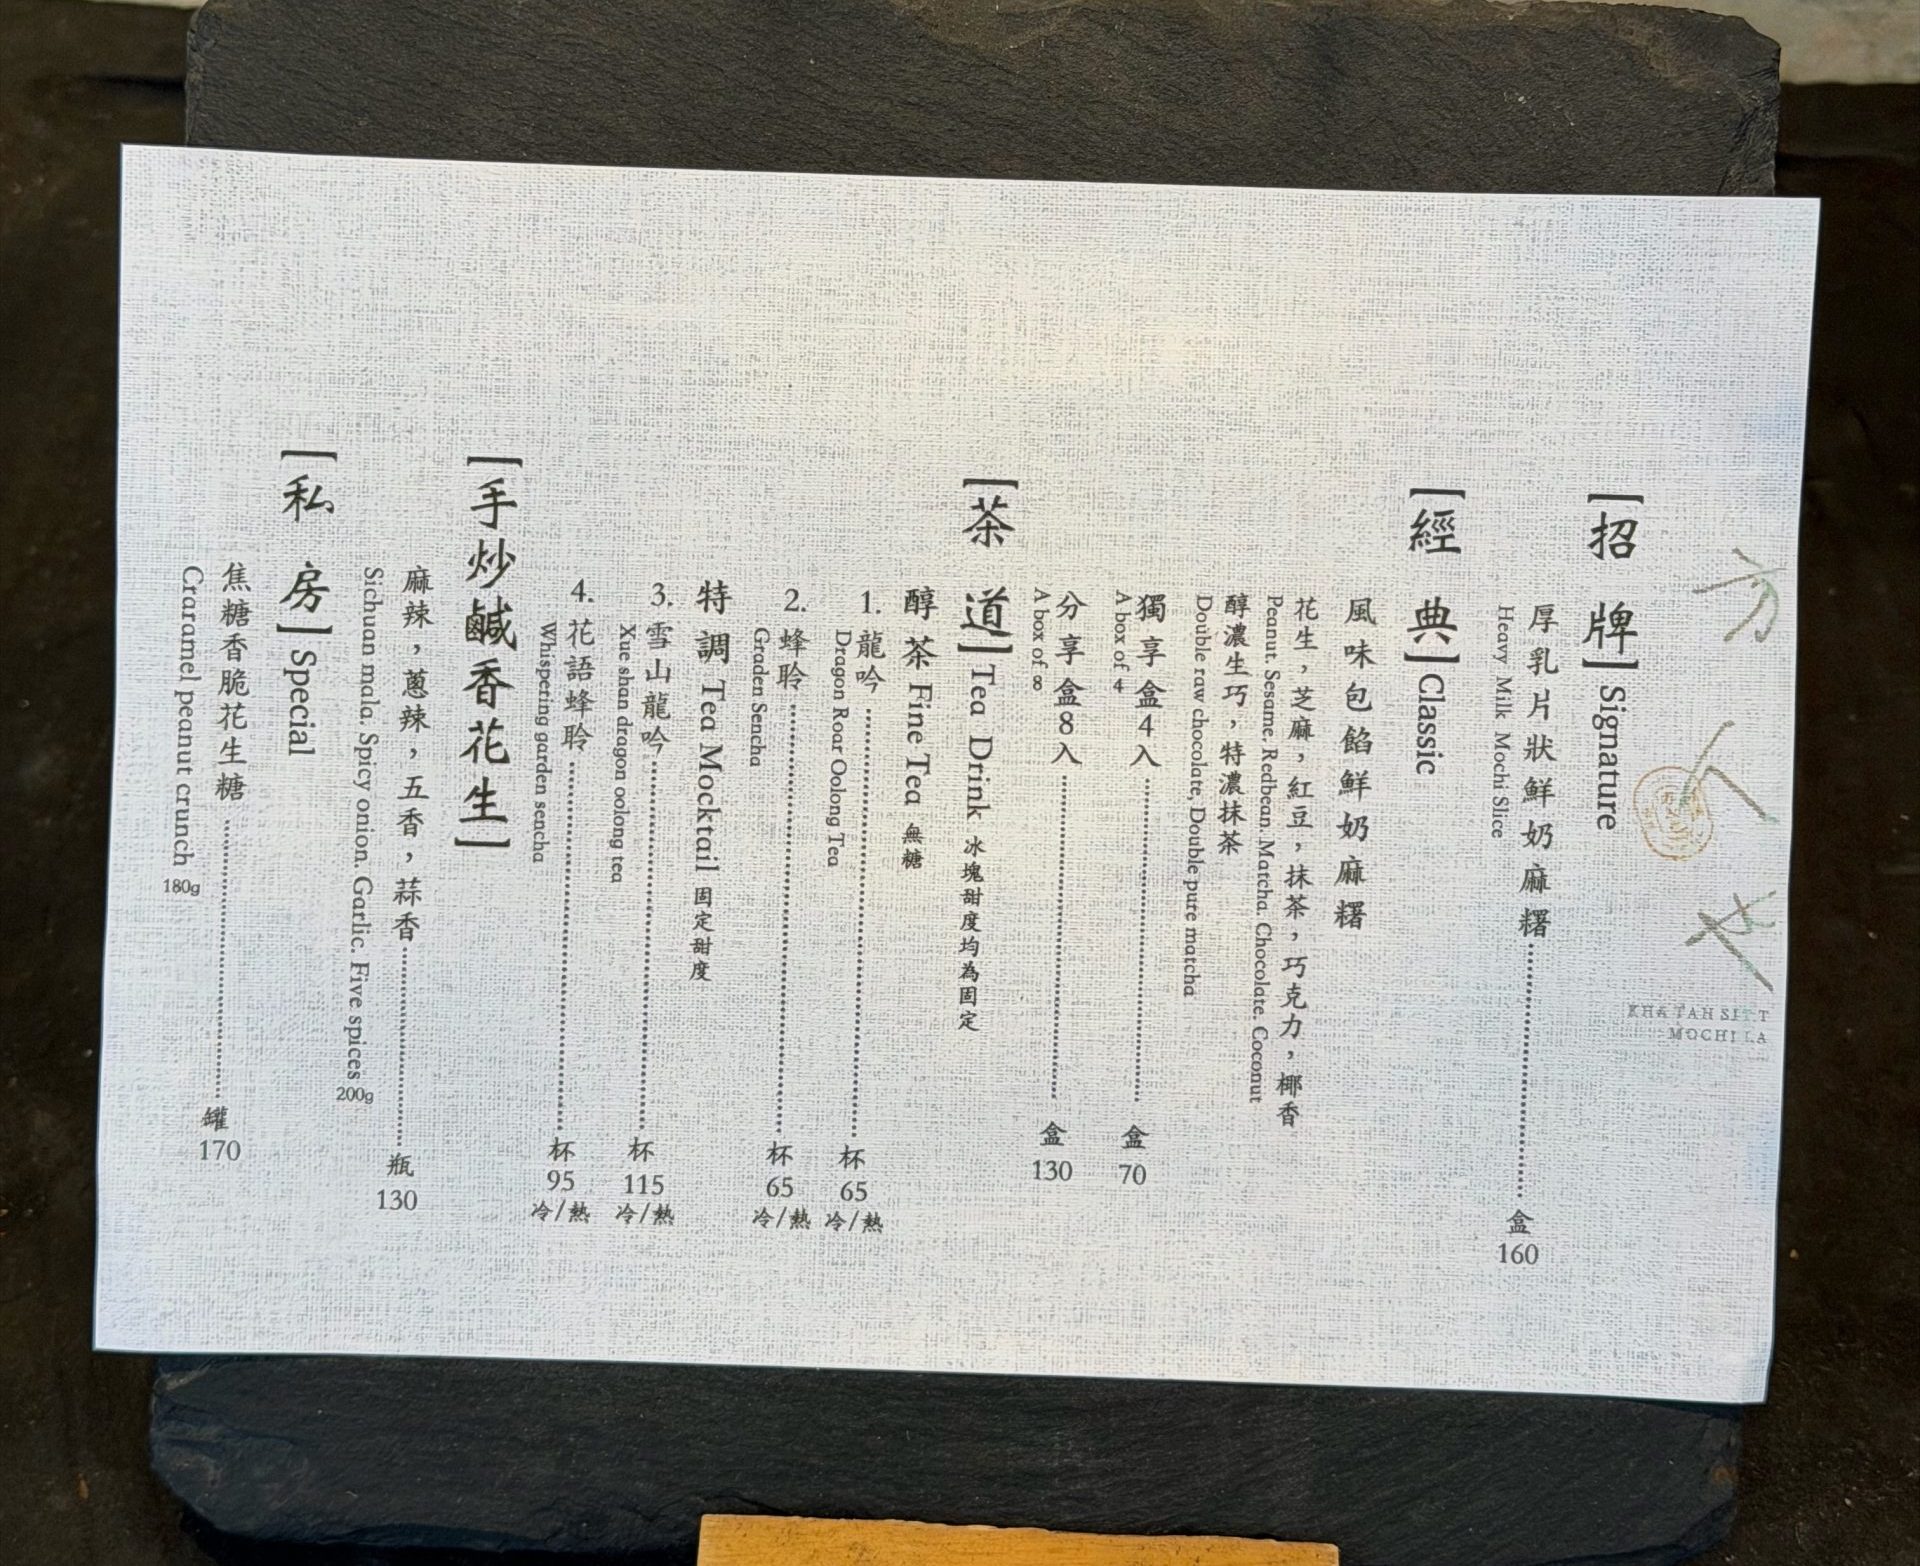 KHA TAH SIT T
MOCHI LA
[招牌] Signature
厚乳片狀鮮奶麻糬 盒 160
Heavy Milk Mochi Slice
[經典] Classic
風味包餡鮮奶麻糬
花生，芝麻，紅豆，抹茶，巧克力，椰香
Peanut. Sesame. Redbean. Matcha. Chocolate. Coconut
醇濃生巧，特濃抹茶
Double raw chocolate, Double pure matcha
獨享盒4入 盒 70
A box of 4
分享盒8入 盒 130
A box of 8
[茶道] Tea Drink 冰塊甜度均為固定
醇茶 Fine Tea 無糖
1. 龍吟 杯 65 冷/熱
Dragon Roar Oolong Tea
2. 蜂聆 杯 65 冷/熱
Graden Sencha
特調 Tea Mocktail 固定甜度
3. 雪山龍吟 杯 115 冷/熱
Xue shan dragon oolong tea
4. 花語蜂聆 杯 95 冷/熱
Whispering garden sencha
[手炒鹹香花生]
麻辣，蔥辣，五香，蒜香 瓶 130
Sichuan mala. Spicy onion. Garlic. Five spices 200g
[私房] Special
焦糖香脆花生糖 罐 170
Craramel peanut crunch 180g